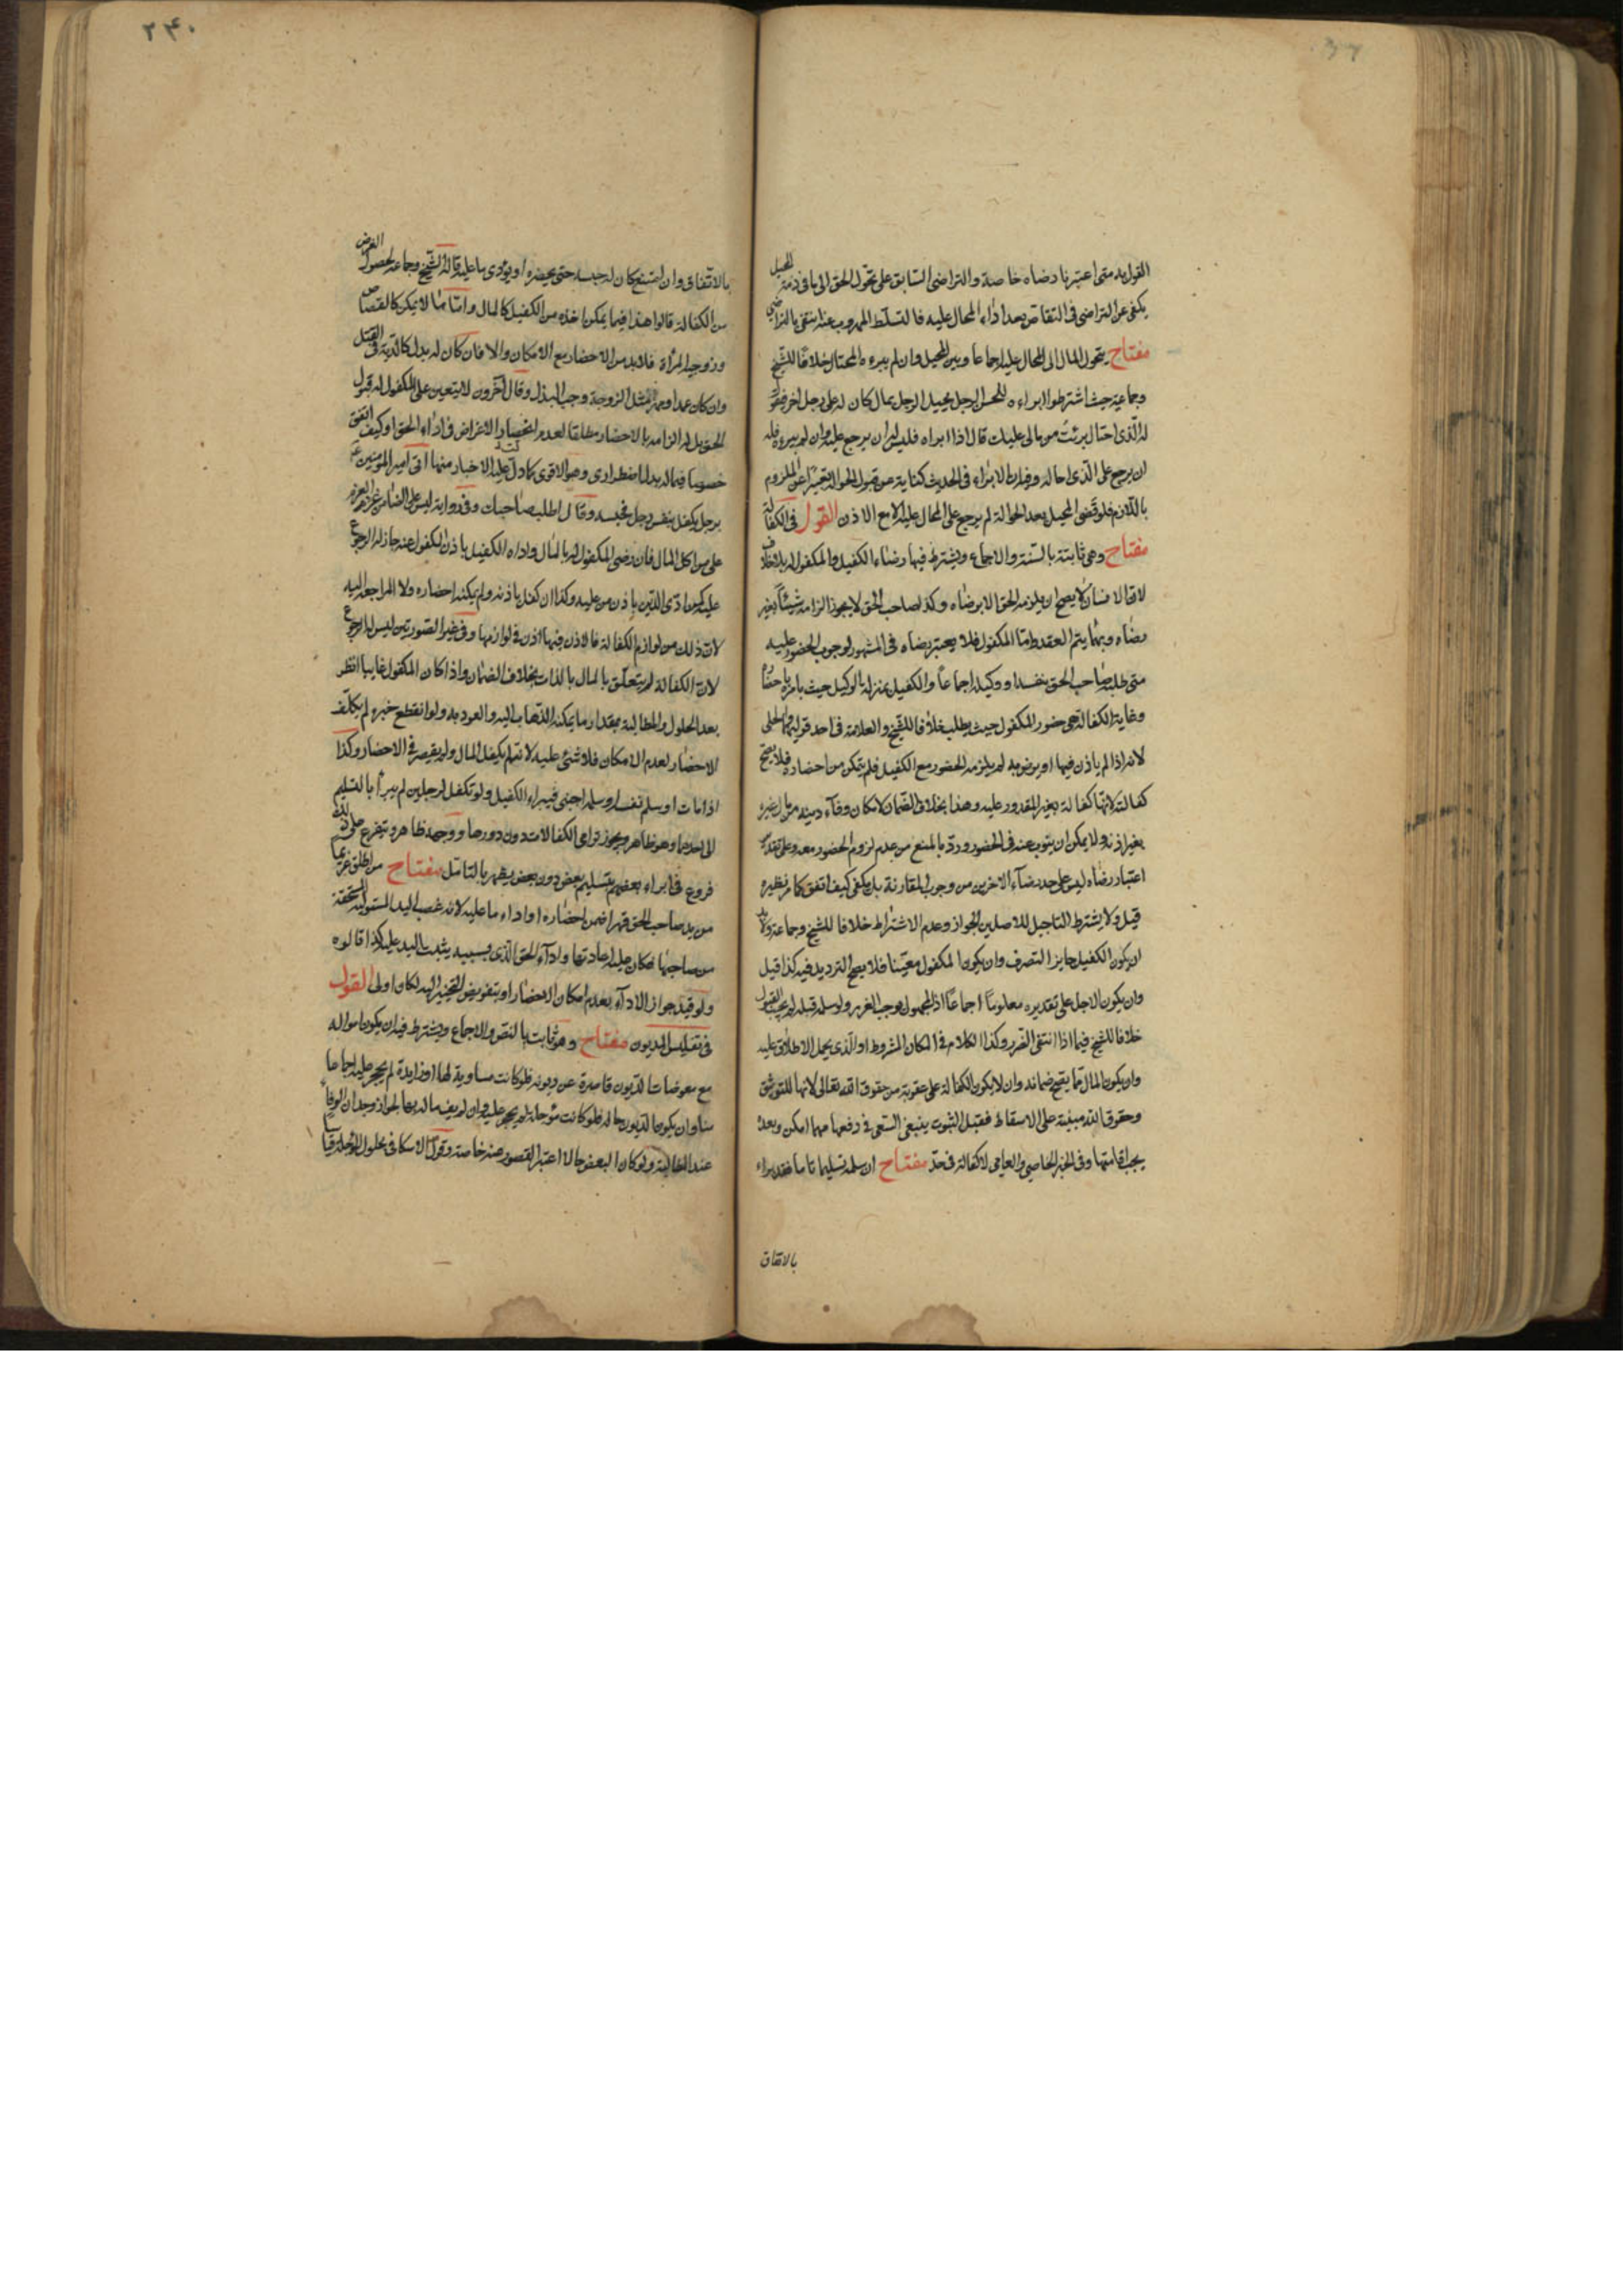 القول به متى اعتبرنا رضاه خاصة والتراضى السابق على تحول الحق الى ما فى ذمة المحيل
يكفى عن التراضى فى التقاص بعد اداء المحال عليه فالتسلط المهروب عنه منتفى بالتراضى
مفتاح يتحول المال الى المحال عليه اجماعا ويبرء المحيل وان لم يبرءه المحتال خلافا للشيخ
وجماعة حيث اشترطوا ابراءه للحسن الرجل يحيل الرجل بمال كان له على رجل اخر فيقول
له الذى احتال برئت من مالى عليك قال اذا ابراه فليس له ان يرجع عليه وان لم يبرءه فله
ان يرجع على الذى احاله وفيه ان الابراء فى الحديث كناية عن قبول الحوالة تعبيرا عن الملزوم
باللازم فلو قضى المحيل بعد الحوالة لم يرجع على المحال عليه الا مع الاذن القول فى الكفالة
مفتاح وهى ثابتة بالسنة والاجماع ويشترط فيها رضاء الكفيل والمكفول له بلا خلاف
لان الانسان لا يصح ان يلزمه الحق الا برضاه وكذا صاحب الحق لا يجوز الزامه شيئا بغير
رضاه وبهما يتم العقد واما المكفول فلا يعتبر رضاه فى المشهور لوجوب الحضور عليه
متى طلبه صاحب الحق بنفسه او وكيله اجماعا والكفيل بمنزلة الوكيل حيث يامره باحضاره
وغاية الكفالة هى حضور المكفول حيث يطلب خلافا للشيخ والعلامة فى احد قوليه والحلى
لانه اذا لم ياذن فيها او يرضى به لم يلزمه الحضور مع الكفيل فلم يتمكن من احضاره فلا يصح
كفالته لانها كفالة بغير المقدور عليه وهذا بخلاف الضمان لامكان وفاء دينه من مال غيره
بغير اذنه ولا يمكن ان ينوب عنه فى الحضور ورد بالمنع من عدم لزوم الحضور معه وعلى تقدير
اعتبار رضاه ليس على حد رضاء الاخرين من وجوب المقارنة بل يكفى كيف اتفق كما مر نظيره
قيل ولا يشترط التاجيل للاصلين الجواز وعدم الاشتراط خلافا للشيخ وجماعة ولا بد
ان يكون الكفيل جايز التصرف وان يكون المكفول معينا فلا يصح الترديد فيه كذا قيل
وان يكون الاجل على تقديره معلوما اجماعا اذ المجهول يوجب الغرر ولو سلمه قبله لم يجب القبول
خلافا للشيخ فيما اذا انتفى الضرر وكذا الكلام فى المكان المشروط او الذى يحمل الاطلاق عليه
وان يكون المال مما يصح ضمانه وان لا يكون الكفالة على عقوبة من حقوق الله تعالى لانها للتوثق
وحقوق الله مبنية على الاسقاط فقبل الثبوت ينبغى السعى فى دفعها مهما امكن وبعده
يجب اقامتها وفى الخبر الخاصى والعامى لا كفالة فى حد مفتاح ان سلمه تسليما تاما فقد براء
بالاتفاق
٢٤٠
بالاتفاق وان امتنع كان له حبسه حتى يحضره او يؤدى ما عليه قاله الشيخ وجماعة لحصول الغرض
من الكفالة قالوا هذا فيما يمكن اخذه من الكفيل كالمال واما ما لا يمكن كالقصاص
وزوجية المرأة فلا بد من الاحضار مع الامكان والا فان كان له بدل كالدية فى القتل
وان كان عمدا ومهر المثل الزوجة وجب البذل وقال اخرون لا يتعين على المكفول له قبول
الحق بل له الزامه بالاحضار مطلقا لعدم انحصار الاغراض فى اداء الحق او كيف اتفق
خصوصا فيما له بدل اضطرارى وهو الاقوى كما دل عليه الاخبار منها اتى امير المؤمنين ع
برجل يكفل بنفس رجل فحبسه وقال اطلب صاحبك وفى رواية ليس على الضامن غرم الغرم
على من اكل المال فان رضى المكفول له بالمال واداه الكفيل باذن المكفول عنه جاز له الرجوع
عليه كمن ادى الدين باذن من عليه وكذا ان كفل باذنه ولم يمكنه احضاره ولا المراجعة اليه
لان ذلك من لوازم الكفالة فالاذن فيها اذن فى لوازمها وفى غير الصورتين ليس له الرجوع
لان الكفالة لم يتعلق بالمال بالذات بخلاف الضمان واذا كان المكفول غايبا انظر
بعد الحلول والمطالبة بمقدار ما يمكنه الذهاب اليه والعود به ولو انقطع خبره لم يكلف
الاحضار لعدم الامكان فلا شئى عليه لانه لم يكفل المال ولم يقصر فى الاحضار وكذا
اذا مات او سلم نفسه او سلمه اجنبى فيبراء الكفيل ولو تكفل لرجلين لم يبرأ بالتسليم
الى احدهما وهو ظاهر ويجوز ترامى الكفالات دون دورها ووجهه ظاهر ويتفرع على ذلك
فروع فى ابراء بعضهم بتسليم بعض دون بعض يظهر بالتامل مفتاح من اطلق غريما
من يد صاحب الحق قهرا ضمن احضاره او اداء ما عليه لانه غصب اليد المستولية المستحقة
من صاحبها فكان عليه اعادتها واداء الحق الذى بسببه يثبت اليد عليه كذا قالوه
ولو قيد جواز الاداء بعدم امكان الاحضار او بتفويض التخيير اليه لكان اولى القول
فى تفليس المديون مفتاح وهو ثابت بالنص والاجماع ويشترط فيه ان يكون امواله
مع معوضات الديون قاصرة عن ديونه فلو كانت مساوية لها او زايدة لم يحجر عليه اجماعا
منا وان يكون الديون حالة فلو كانت مؤجلة لم يحجر عليه وان لم يف ماله بها لجواز وجدان الوفاء
عند المطالبة ولو كان البعض حالا اعتبر القصور عنه خاصة وقول الاسكافى بحلول المؤجلة قياسا